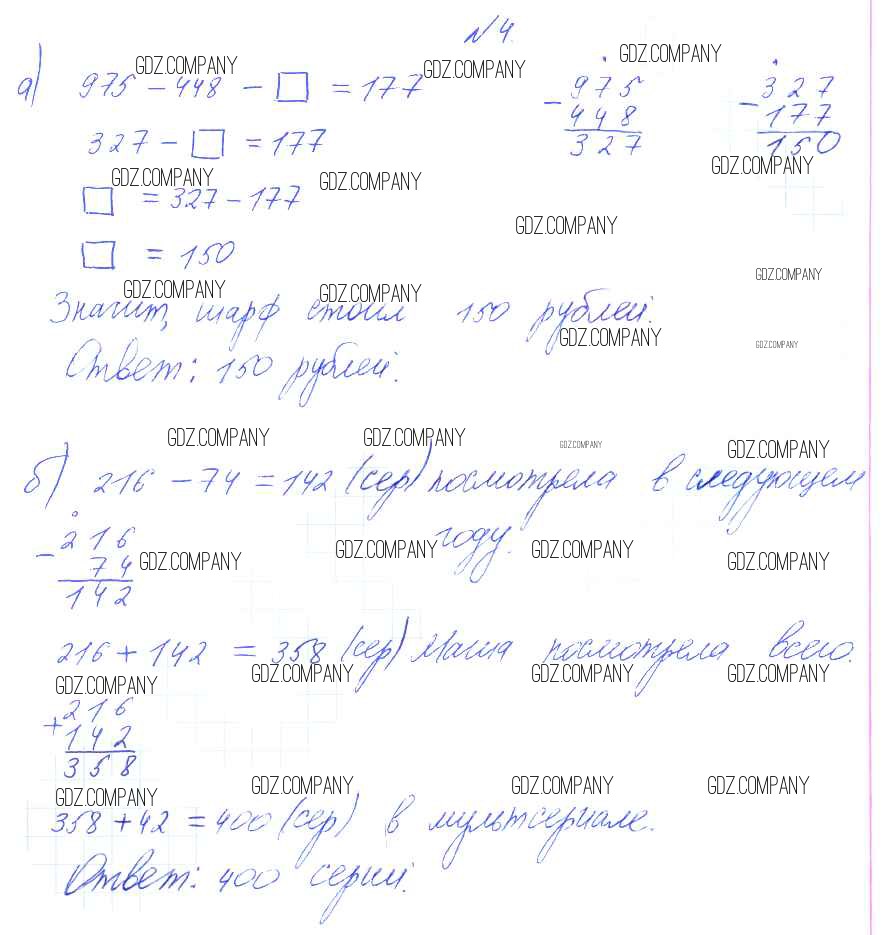 N 4.
а) 975 - 448 - □ = 177
327 - □ = 177
□ = 327 - 177
□ = 150
- 975
448
327
- 327
177
150
Значит, шарф стоил 150 рублей.
Ответ: 150 рублей.
б) 216 - 74 = 142 (сер) посмотрела в следующем
году.
- 216
74
142
216 + 142 = 358 (сер) Маша посмотрела всего.
+ 216
142
358
358 + 42 = 400 (сер) в мультсериале.
Ответ: 400 серий.
GDZ.COMPANY GDZ.COMPANY GDZ.COMPANY
GDZ.COMPANY GDZ.COMPANY GDZ.COMPANY
GDZ.COMPANY
GDZ.COMPANY GDZ.COMPANY GDZ.COMPANY
GDZ.COMPANY GDZ.COMPANY
GDZ.COMPANY GDZ.COMPANY GDZ.COMPANY GDZ.COMPANY
GDZ.COMPANY GDZ.COMPANY GDZ.COMPANY GDZ.COMPANY
GDZ.COMPANY GDZ.COMPANY GDZ.COMPANY GDZ.COMPANY
GDZ.COMPANY GDZ.COMPANY GDZ.COMPANY GDZ.COMPANY